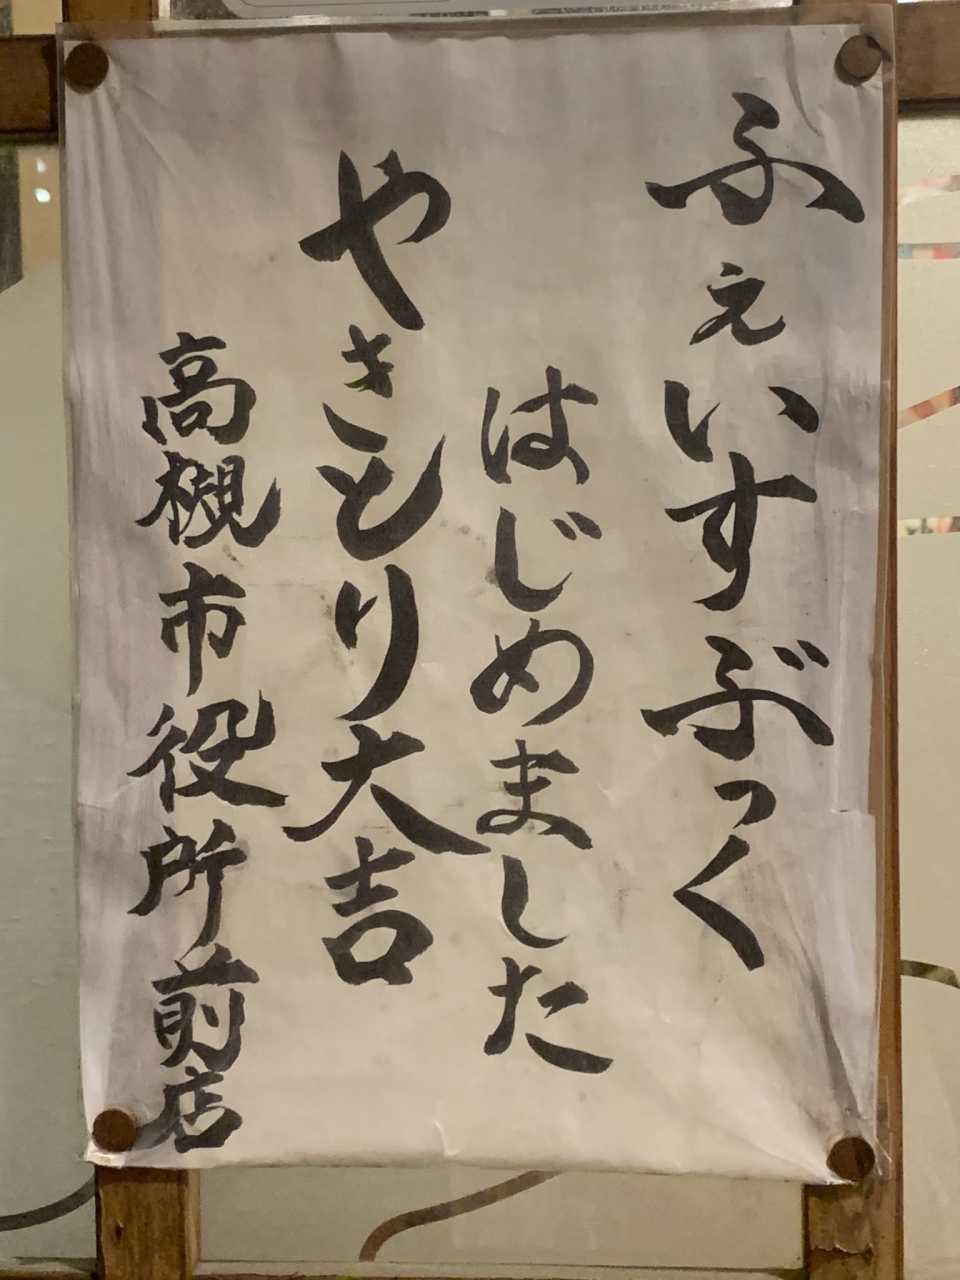 ふぇいすぶっく
はじめました
やきとり大吉
高槻市役所前店